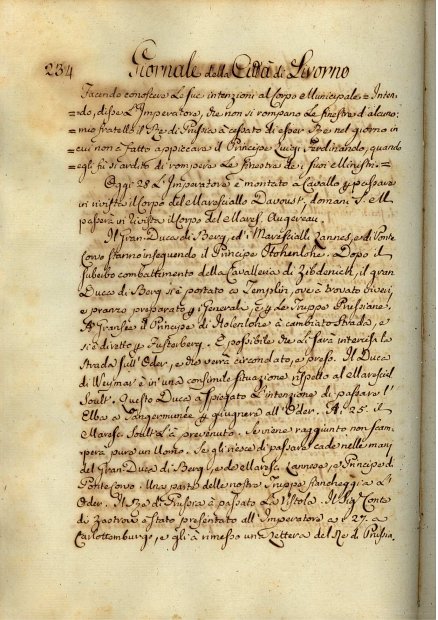 234 Giornale della Città di Livorno
Facendo conoscere le sue intenzioni al Corpo Municipale = Inten-
=do, disse L'Imperatore, che non si rompano le finestre d'alcuno:
=mio fratello il Re di Prussia à cessato di esser Re nel giorno in
=cui non à fatto appiccare il Principe Luigi Ferdinando, quando
=egli fu sì ardito di rompere le finestre de' suoi Ministri =
Oggi 28 L'Imperatore è montato a Cavallo p passare
in rivista il Corpo del Maresciallo Davoust, domani S. M.
passerà in rivista il Corpo del Maresc. Augereau.
Il Gran-Duca di Berg, ed i Marescialli Lannes, e di Ponte
Corvo stanno inseguendo il Principe Hohenlohe. Dopo il
superbo combattimento della Cavalleria di Zehdenick, il gran
Duca di Berg si è portato a Templin, ove à trovato viveri,
e pranzo preparato p i Generali, e p le Truppe Prussiane.
A Gransee il Principe di Hohenlohe à cambiato strada, e
si è diretto p Fusterberg. È possibile che li sarà intercisa la
strada sull'Oder, e che verrà circondato, e preso. Il Duca
di Weymar è in una consimile situazione rispetto al Marescial
Soult. Questo Duca à spiegato l'intenzione di passare l'
Elba a Tangermunde p giugnere all'Oder. Ai 25. il
Maresc. Soult l'à prevenuto. Se viene raggiunto non scam-
perà pure un Uomo. Se gli riesce di passare cade nelle mani
del Gran Duca di Berg, e de' Maresc. Lannes, e Principe di
Pontecorvo. Una parte delle nostre Truppe fiancheggia l'
Oder. Il Re di Prussia à passato la Vistola. Il Sig. Conte
di Zastrow è stato presentato all'Imperatore ai 27. a
Carlottemburgo, e gli à rimesso una Lettera del Re di Prussia.